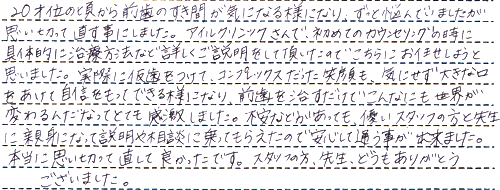 20才位の頃から前歯のすき間が気になる様になり、ずっと悩んでましたが
思い切って直す事にしました。アイルクリニックさんで、初めてのカウンセリングの時に
具体的に治療方法など詳しくご説明をして頂いたのでこちらにお任せしようと
思いました。実際に仮歯をつけて、コンプレックスだった笑顔も、気にせず大きな口
をあけて自信をもってできる様になり、前歯を治すだけでこんなにも世界が
変わるんだなってとても感激しました。不安などがあっても、優しいスタッフの方と先生
に親身になって説明や相談に乗ってもらえたので安心して通う事が出来ました。
本当に思い切って直して良かったです。スタッフの方、先生、どうもありがとう
ございました。